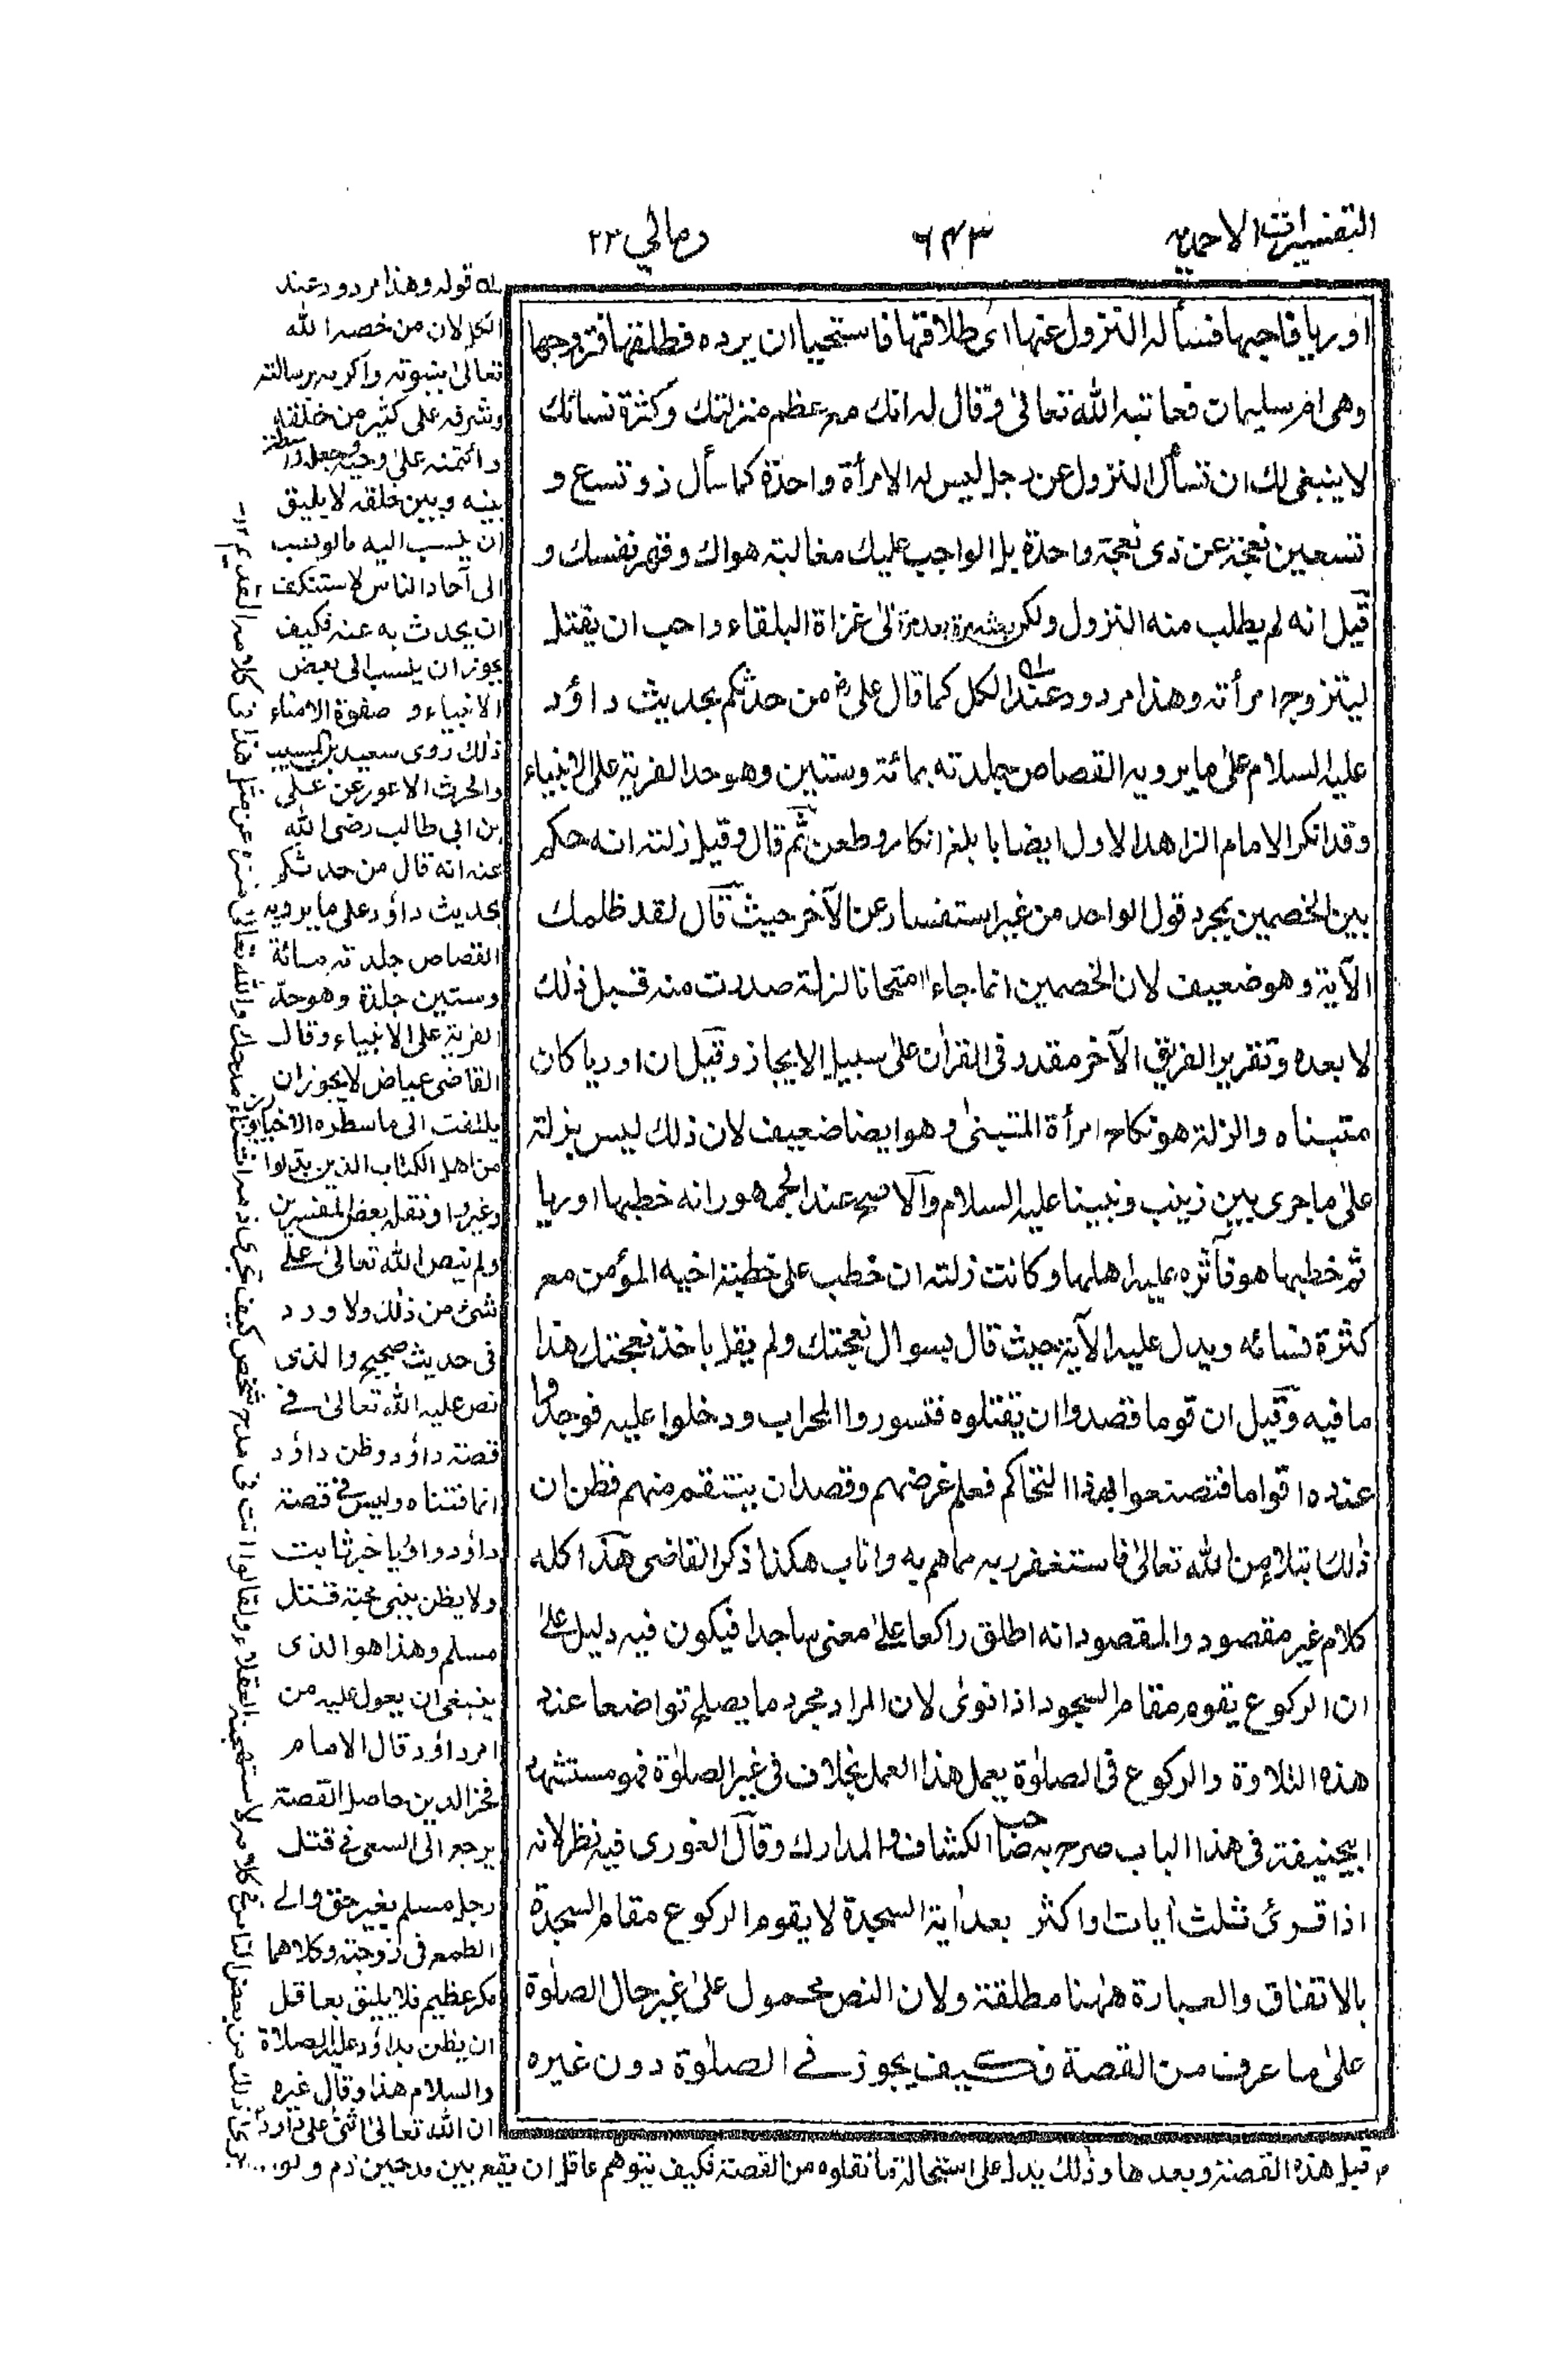 التفسيرات الاحمديه
٦٤٣
ومالي ٢٣
اوريا فاحبها فسأله النزول عنها اى طلاقتها فاستحيا ان يرده فطلقها فتزوجها
وهى ام سليمان فعاتبه الله تعالىٰ وقال له انك مع عظم منزلتك وكثرة نسائك
لا ينبغى لك ان تسأل النزول عن رجل ليس له الا مرأة واحدة كما سأل ذو تسع و
تسعين نعجة عن ذى نعجة واحدة بل الواجب عليك مغالبة هواك وقهر نفسك و
قيل انه لم يطلب منه النزول ولكن بعثه مرة بعد مرة الى غزاة البلقاء واحب ان يقتل
ليتزوج امرأته وهذا مردود عند الكل كما قال على رض من حدثكم بحديث داؤد
عليه السلام على ما يرويه القصاص جلدته بمائة وستين وهو حد الفرية على الانبياء
وقد انكر الامام الزاهد الاول ايضا بابلغ انكار وطعن ثم قال وقيل زلته انه حكم
بين الخصمين بمجرد قول الواحد من غير استفسار عن الآخر حيث قال لقد ظلمك
الآية وهو ضعيف لان الخصمين انما جاءا امتحانا لزلة صدرت منه قبل ذٰلك
لا بعده وتقرير الفريق الآخر مقدر فى القرأن علىٰ سبيل الايجاز وقيل ان اوريا كان
متبناه والزلة هو نكاح امرأة المتبنىٰ وهو ايضا ضعيف لان ذلك ليس بزلة
علىٰ ما جرى بين زينب ونبينا عليه السلام والاصح عند الجمهور انه خطبها اوريا
ثم خطبها هو فآثره عليه اهلها وكانت زلته ان خطب على خطبة اخيه المؤمن مع
كثرة نسائه ويدل عليه الآية حيث قال بسوال نعجتك ولم يقل باخذ نعجتك هذا
ما فيه وقيل ان قوما قصدوا ان يقتلوه فتسوروا المحراب ودخلوا عليه فوجدوا
عنده اقواما فتصنعوا بهذا التحاكم فعلم غرضهم وقصد ان ينتقم منهم فظن ان
ذٰلك ابتلاء من الله تعالىٰ فاستغفر ربه مما هم به واناب هكذا ذكر القاضى هذا كله
كلام غير مقصود والمقصود انه اطلق راكعا علىٰ معنى ساجدا فيكون فيه دليل علىٰ
ان الركوع يقوم مقام السجود اذا نوىٰ لان المراد مجرد ما يصلح تواضعا عند
هذه التلاوة والركوع فى الصلوٰة يعمل هذا العمل بخلاف فى غير الصلوٰة فهو مستشهد
ابيحنيفة فى هذا الباب صرح به صاحب الكشاف والمدارك وقال الغورى فيه نظر لانه
اذا قرئ ثلث أيات او اكثر بعد أية السجدة لا يقوم الركوع مقام السجدة
بالاتفاق والعبارة هٰهنا مطلقة ولان النص محمول علىٰ غير حال الصلوٰة
علىٰ ما عرف من القصة فكيف يجوز فے الصلوٰة دون غيره
له قوله وهذا مردود عند
الكل لان من خصه الله
تعالىٰ بنبوته واكرمه برسالته
وشرفه على كثير من خلقه
وائتمنه علىٰ وحيه وجعله واسطة
بينه وبين خلقه لا يليق
ان ينسب اليه ما لو نسب
الى آحاد الناس لاستنكف
ان يحدث به عنه فكيف
يجوز ان ينسب الى بعض
الانبياء و صفوة الامناء
ذلك روى سعيد بن المسيب
والحرث الاعور عن على
بن ابى طالب رضى الله
عنه انه قال من حدثكم
بحديث داؤد على ما يرويه
القصاص جلدته مائة
وستين جلدة وهو حد
الفرية على الانبياء وقال
القاضى عياض لا يجوز ان
يلتفت الى ما سطره الاخباريون
من اهل الكتاب الذين بدلوا
وغيروا ونقله بعض المفسرين
ولم ينص الله تعالىٰ علىٰ
شئ من ذلك ولا ورد
فى حديث صحيح والذى
نص عليه الله تعالىٰ فے
قصة داؤد وظن داؤد
انما فتناه وليس فى قصة
داؤد واوريا خبر ثابت
ولا يظن بنبى محبة قتل
مسلم وهذا هو الذى
ينبغى ان يعول عليه من
امر داؤد قال الامام
فخر الدين حاصل القصة
يرجع الى السعى فے قتل
رجل مسلم بغير حق والے
الطمع فى زوجته وكلاهما
منكر عظيم فلا يليق بعاقل
ان يظن بداؤد عليه الصلاة
والسلام هذا وقال غيره
ان الله تعالىٰ اثنىٰ على داؤد
قبل هذه القصة وبعدها وذٰلك يدل على استحالة ما نقلوه من القصة فكيف يتوهم عاقل ان يقع بين مدحين ذم ولو
جرى ذلك من بعض الناس فى كلام لاستهجنه العقلاء ولقالوا انت فى مدح شخص كيف تجرى ذمه اثناء مدحك والله تعالىٰ منزه عن مثل هذا فى كلامه القديم ١٢